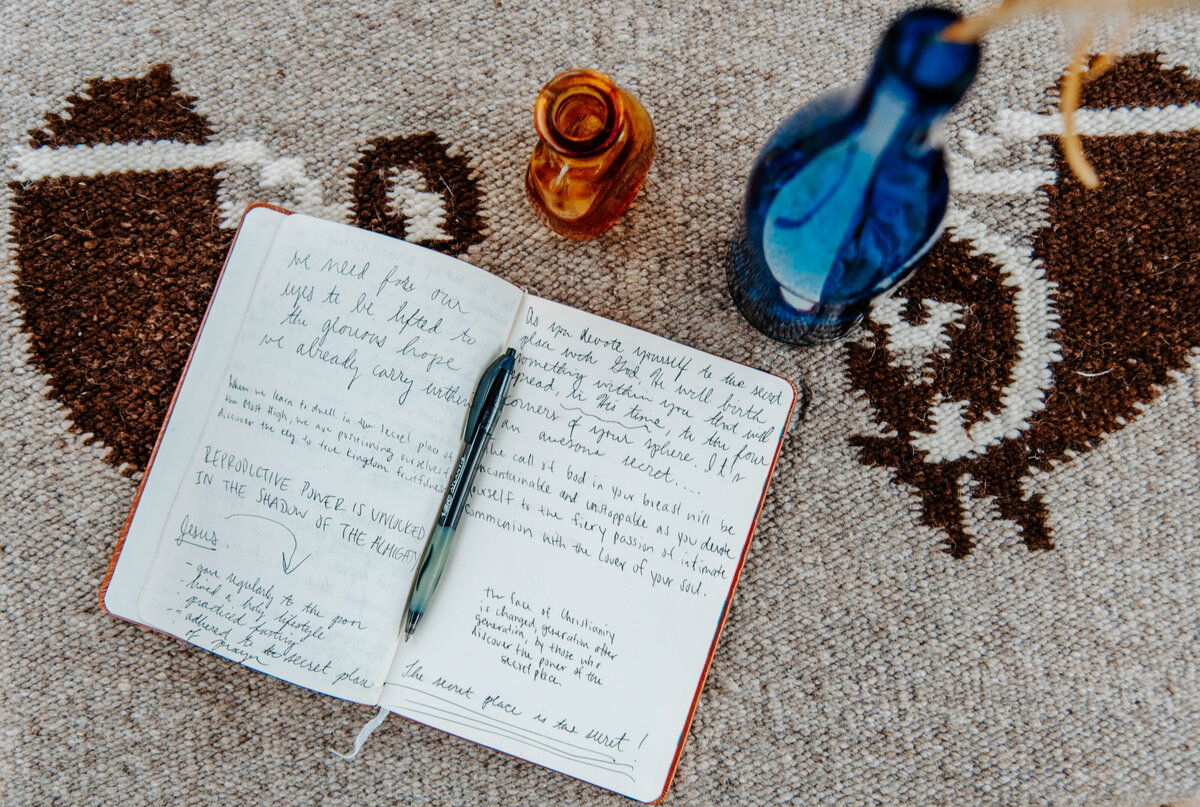 we need for our
eyes to be lifted to
the glorious hope
we already carry within
When we learn to dwell in the secret place of
the Most High, we are positioning ourselves to
discover the key to true Kingdom fruitfulness
REPRODUCTIVE POWER IS UNLOCKED
IN THE SHADOW OF THE ALMIGHTY
Jesus.
- gave regularly to the poor
- lived a holy lifestyle
- practiced fasting
- adhered to the secret place
of prayer
As you devote yourself to the secret
place with God He will birth
something within you that will
spread, in His time, to the four
corners of your sphere. It's
an awesome secret....
The call of God in your breast will be
uncontainable and unstoppable as you devote
yourself to the fiery passion of intimate
communion with the lover of your soul.
the face of Christianity
is changed, generation after
generation, by those who
discover the power of the
secret place.
The secret place is the secret!